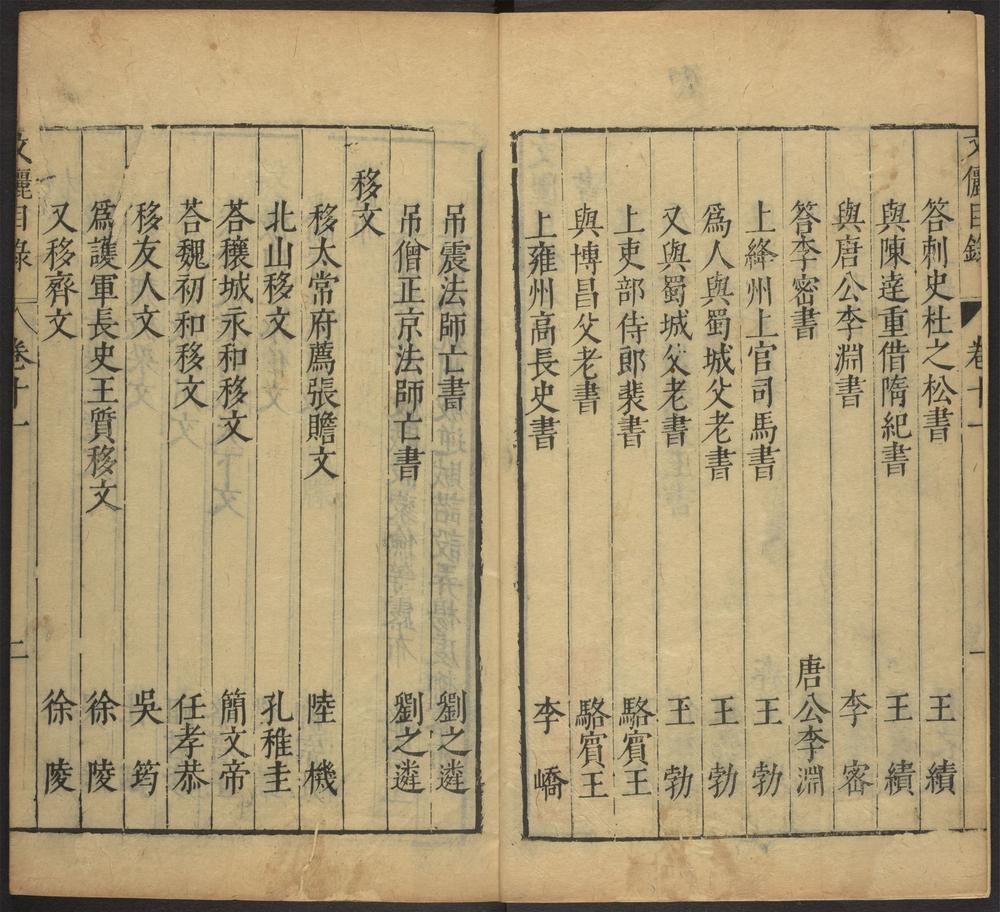 文儷目錄 卷十一 一
答刺史杜之松書 王績
與陳逹重借隋紀書 王績
與唐公李淵書 李密
答李密書 唐公李淵
上絳州上官司馬書 王勃
爲人與蜀城父老書 王勃
又與蜀城父老書 王勃
上吏部侍郎裴書 駱賓王
與博昌父老書 駱賓王
上雍州高長史書 李嶠
吊震法師亡書 劉之遴
吊僧正京法師亡書 劉之遴
移文
移太常府薦張贍文 陸機
北山移文 孔稚圭
荅穰城永和移文 簡文帝
荅魏初和移文 任孝恭
移友人文 吳筠
爲護軍長史王質移文 徐陵
又移齊文 徐陵
文儷目錄 卷十一 二